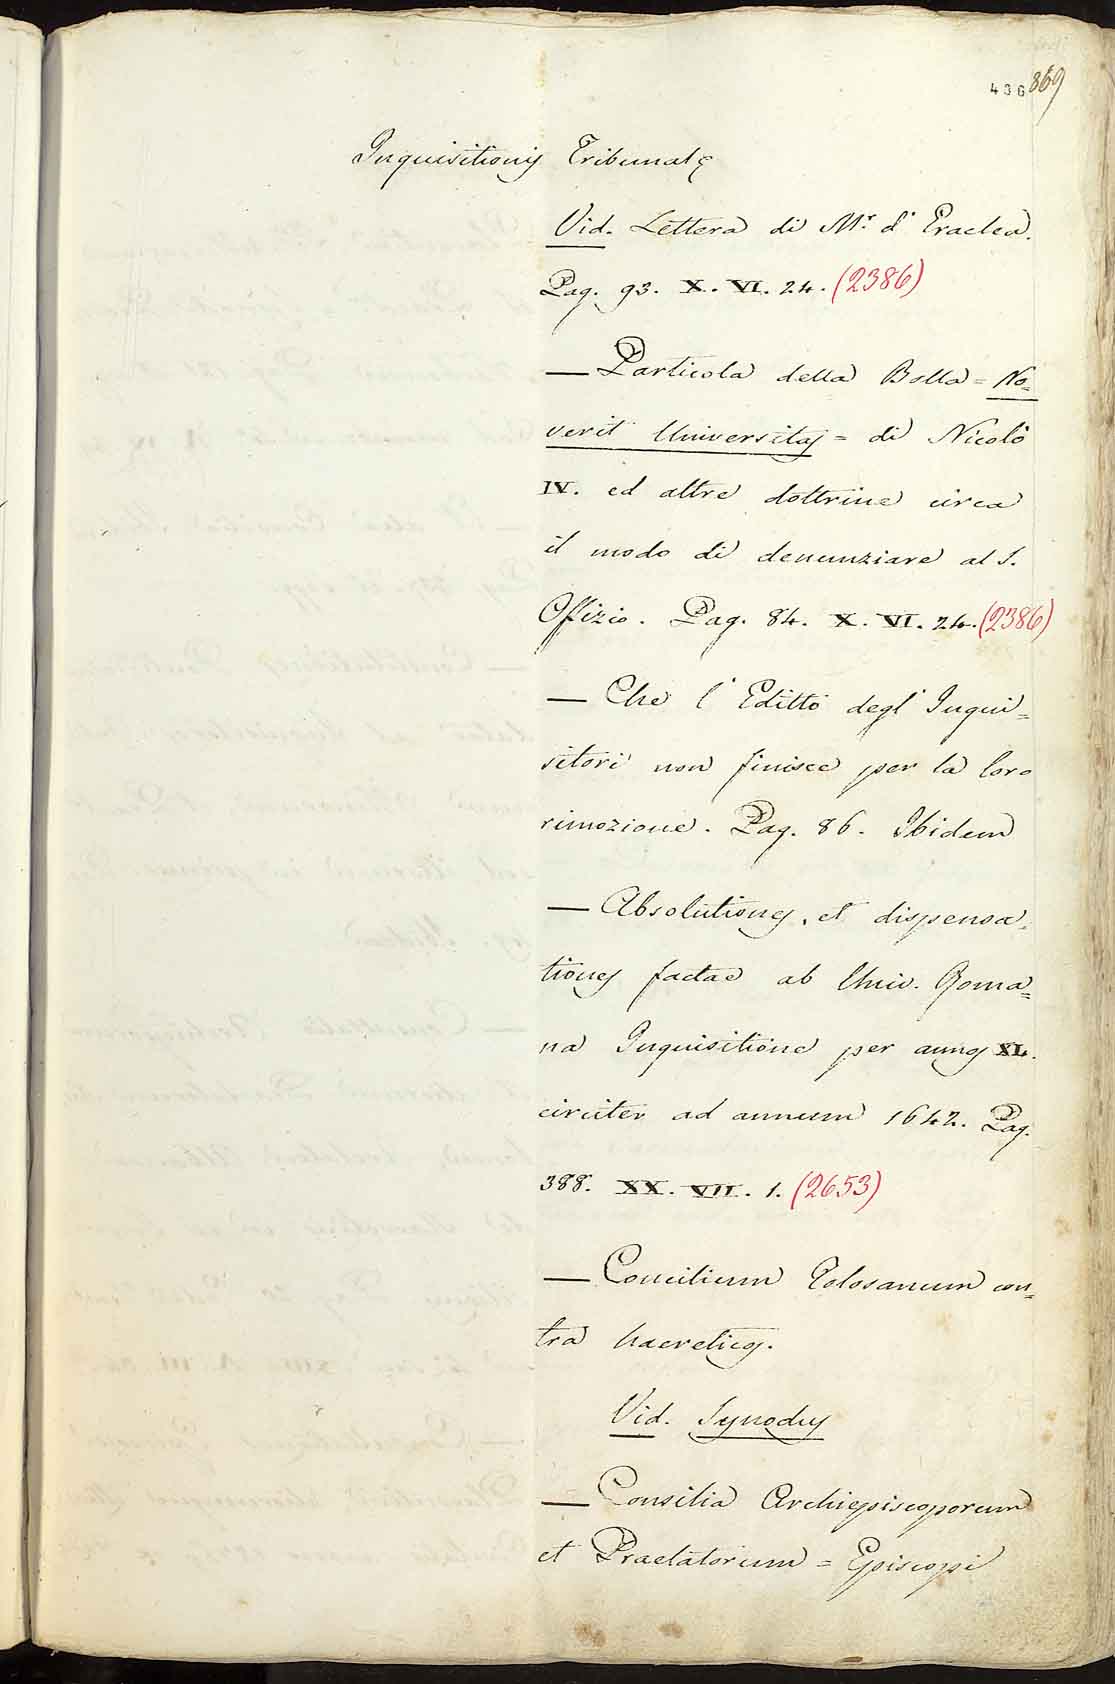 436 869
Inquisitionis Tribunale
Vid. Lettera di Mr. d' Eraclea.
Pag. 93. X. VI. 24. (2386)
— Particola della Bolla = No=
verit Universitas = di Nicolò
IV. ed altre dottrine circa
il modo di denunziare al S.
Offizio. Pag. 84. X. VI. 24. (2386)
— Che l' Editto degl' Inqui=
sitori non finisce per la loro
rimozione. Pag. 86. Ibidem
— Absolutiones, et dispensa=
tiones factae ab Univ. Roma=
na Inquisitione per annos XL.
circiter ad annum 1642. Pag.
388. XX. VII. 1. (2653)
— Concilium Tolosanum con=
tra haereticos.
Vid. Synodus
— Consilia Archiepiscoporum
et Praelatorum = Episcopi